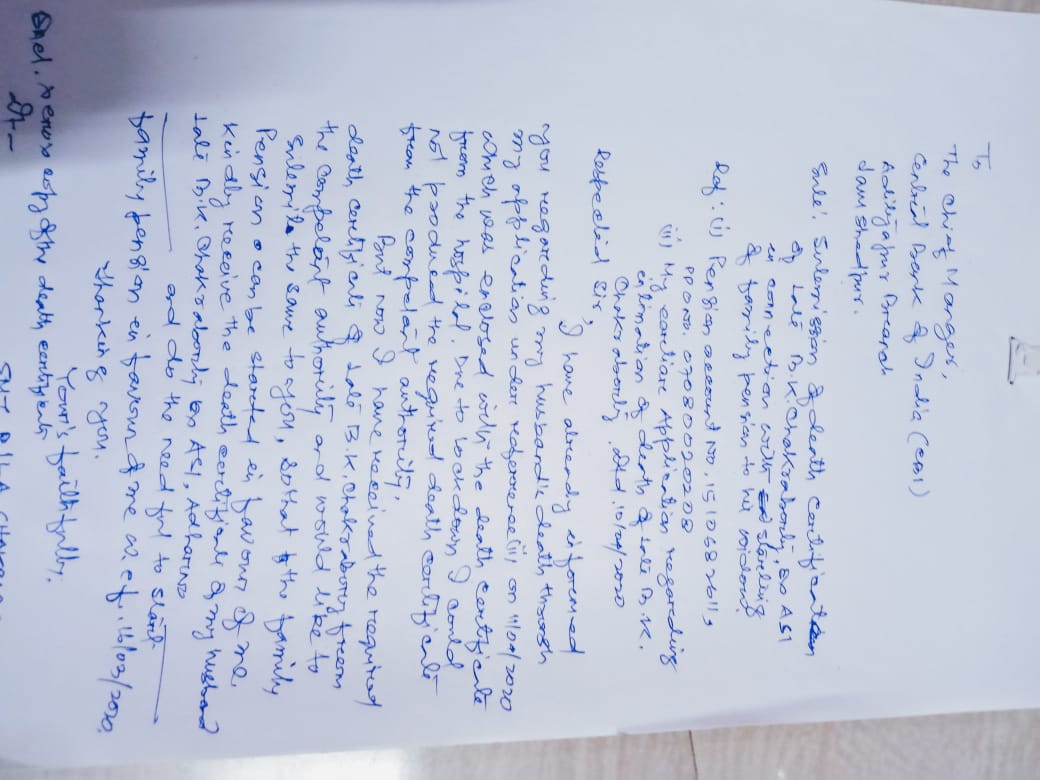 To
The Chief Manger,
Central Bank of India (CBI)
Adityapur Branch
Jamshedpur.
Sub: Submission of death certificate
of late B.K. Chakraborty, ASI
in connection with starling
of family pension to his widow
Ref: (i) Pension account No. 1510682611,
PPO No. 078002020208
(ii) My earlier Application regarding
intimation of death of late B.K.
Chakraborty, dtd.
Respected Sir,
I have already informed
you regarding my husband's death through
my application under reference (ii) on
which was enclosed with the death certificate
from the hospital. Due to lockdown I could
not produced the required death certificate
from the competent authority.
But now I have received the required
death certificate of late B.K. Chakraborty from
the competent authority and would like to
submit the same to you, so that the family
Pension can be started in favour of me.
Kindly receive the death certificate of my husband
late B.K. Chakraborty ASI,
and do the need ful to start
family pension in favour of me w.e.f. 16/03/2020.
Thanking you.
Your's faithfully.
Encl. xerox copy of the death certificate